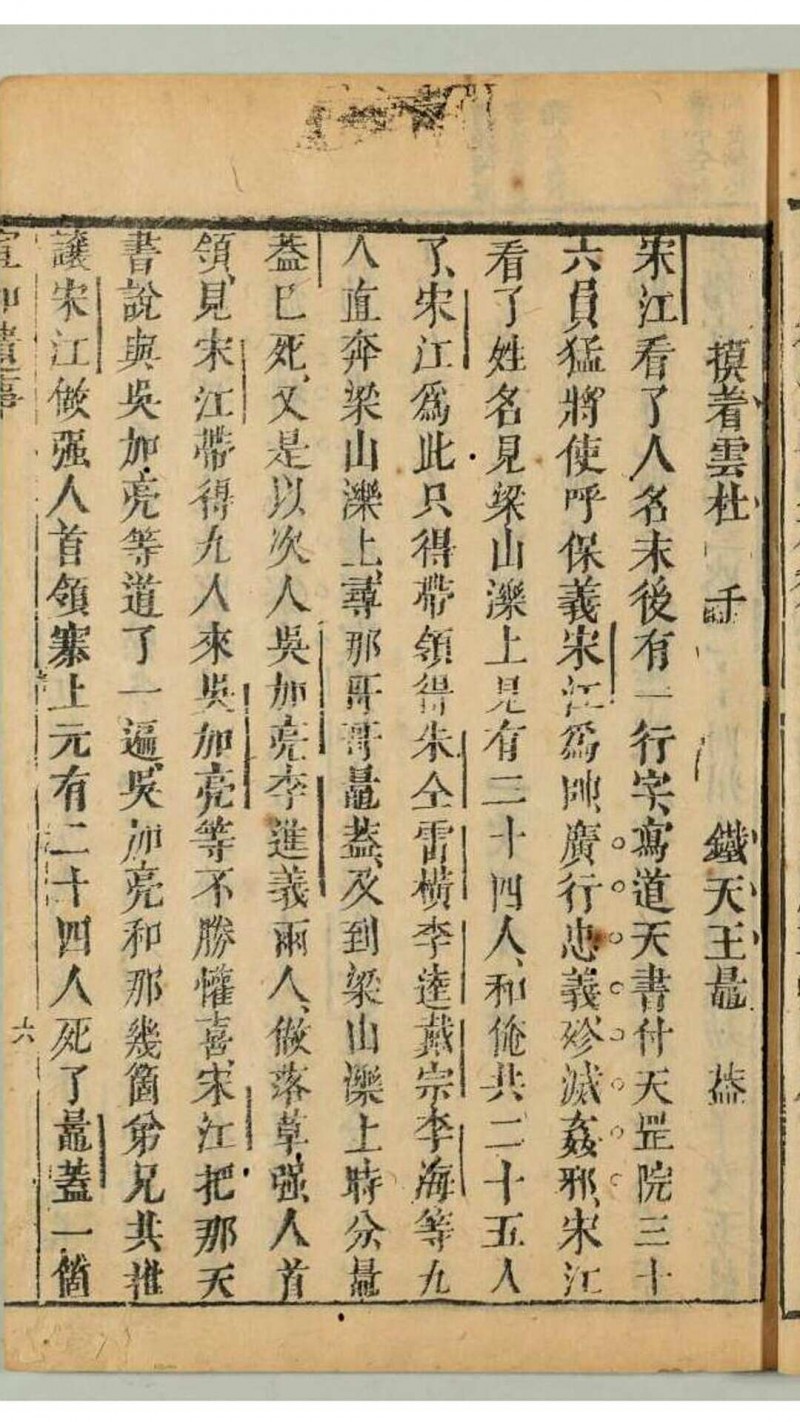 摸着雲杜千 鐵天王鼂葢
宋江看了人名末後有一行字寫道天書付天罡院三十
六員猛將使呼保義宋江爲帥廣行忠義殄滅姦邪、宋江
看了姓名見梁山濼上見有二十四人、和俺共二十五人
了、宋江爲此只得帶領得朱仝雷橫李逵戴宗李海等九
人直奔梁山濼上、尋那哥哥鼂葢、及到梁山濼上時分鼂
葢巳死、又是以次人吳加亮李進義兩人、做落草強人首
領、見宋江帶得九人來吳加亮等不勝懽喜、宋江把那天
書說與吳加亮等道了一遍、吳加亮和那幾箇弟兄共推
讓宋江做强人首領寨上元有二十四人死了鼂蓋一箇
宣和遺事 六